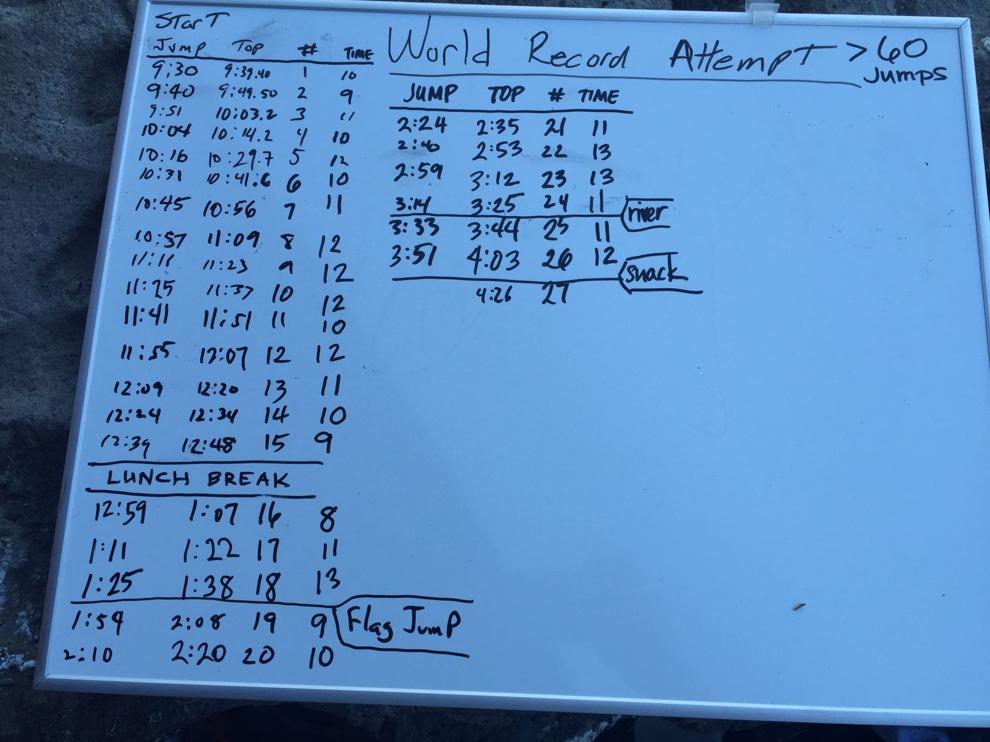 START
JUMP TOP # TIME
9:30 9:39.40 1 10
9:40 9:49.50 2 9
9:51 10:03.2 3 11
10:04 10:14.2 4 10
10:16 10:29.7 5 12
10:31 10:41.6 6 10
10:45 10:56 7 11
10:57 11:09 8 12
11:11 11:23 9 12
11:25 11:37 10 12
11:41 11:51 11 10
11:55 12:07 12 12
12:09 12:20 13 11
12:24 12:34 14 10
12:39 12:48 15 9
LUNCH BREAK
12:59 1:07 16 8
1:11 1:22 17 11
1:25 1:38 18 13
1:59 2:08 19 9 Flag Jump
2:10 2:20 20 10
World Record Attempt > 60 Jumps
JUMP TOP # TIME
2:24 2:35 21 11
2:40 2:53 22 13
2:59 3:12 23 13
3:14 3:25 24 11 river
3:33 3:44 25 11
3:51 4:03 26 12 snack
4:26 27